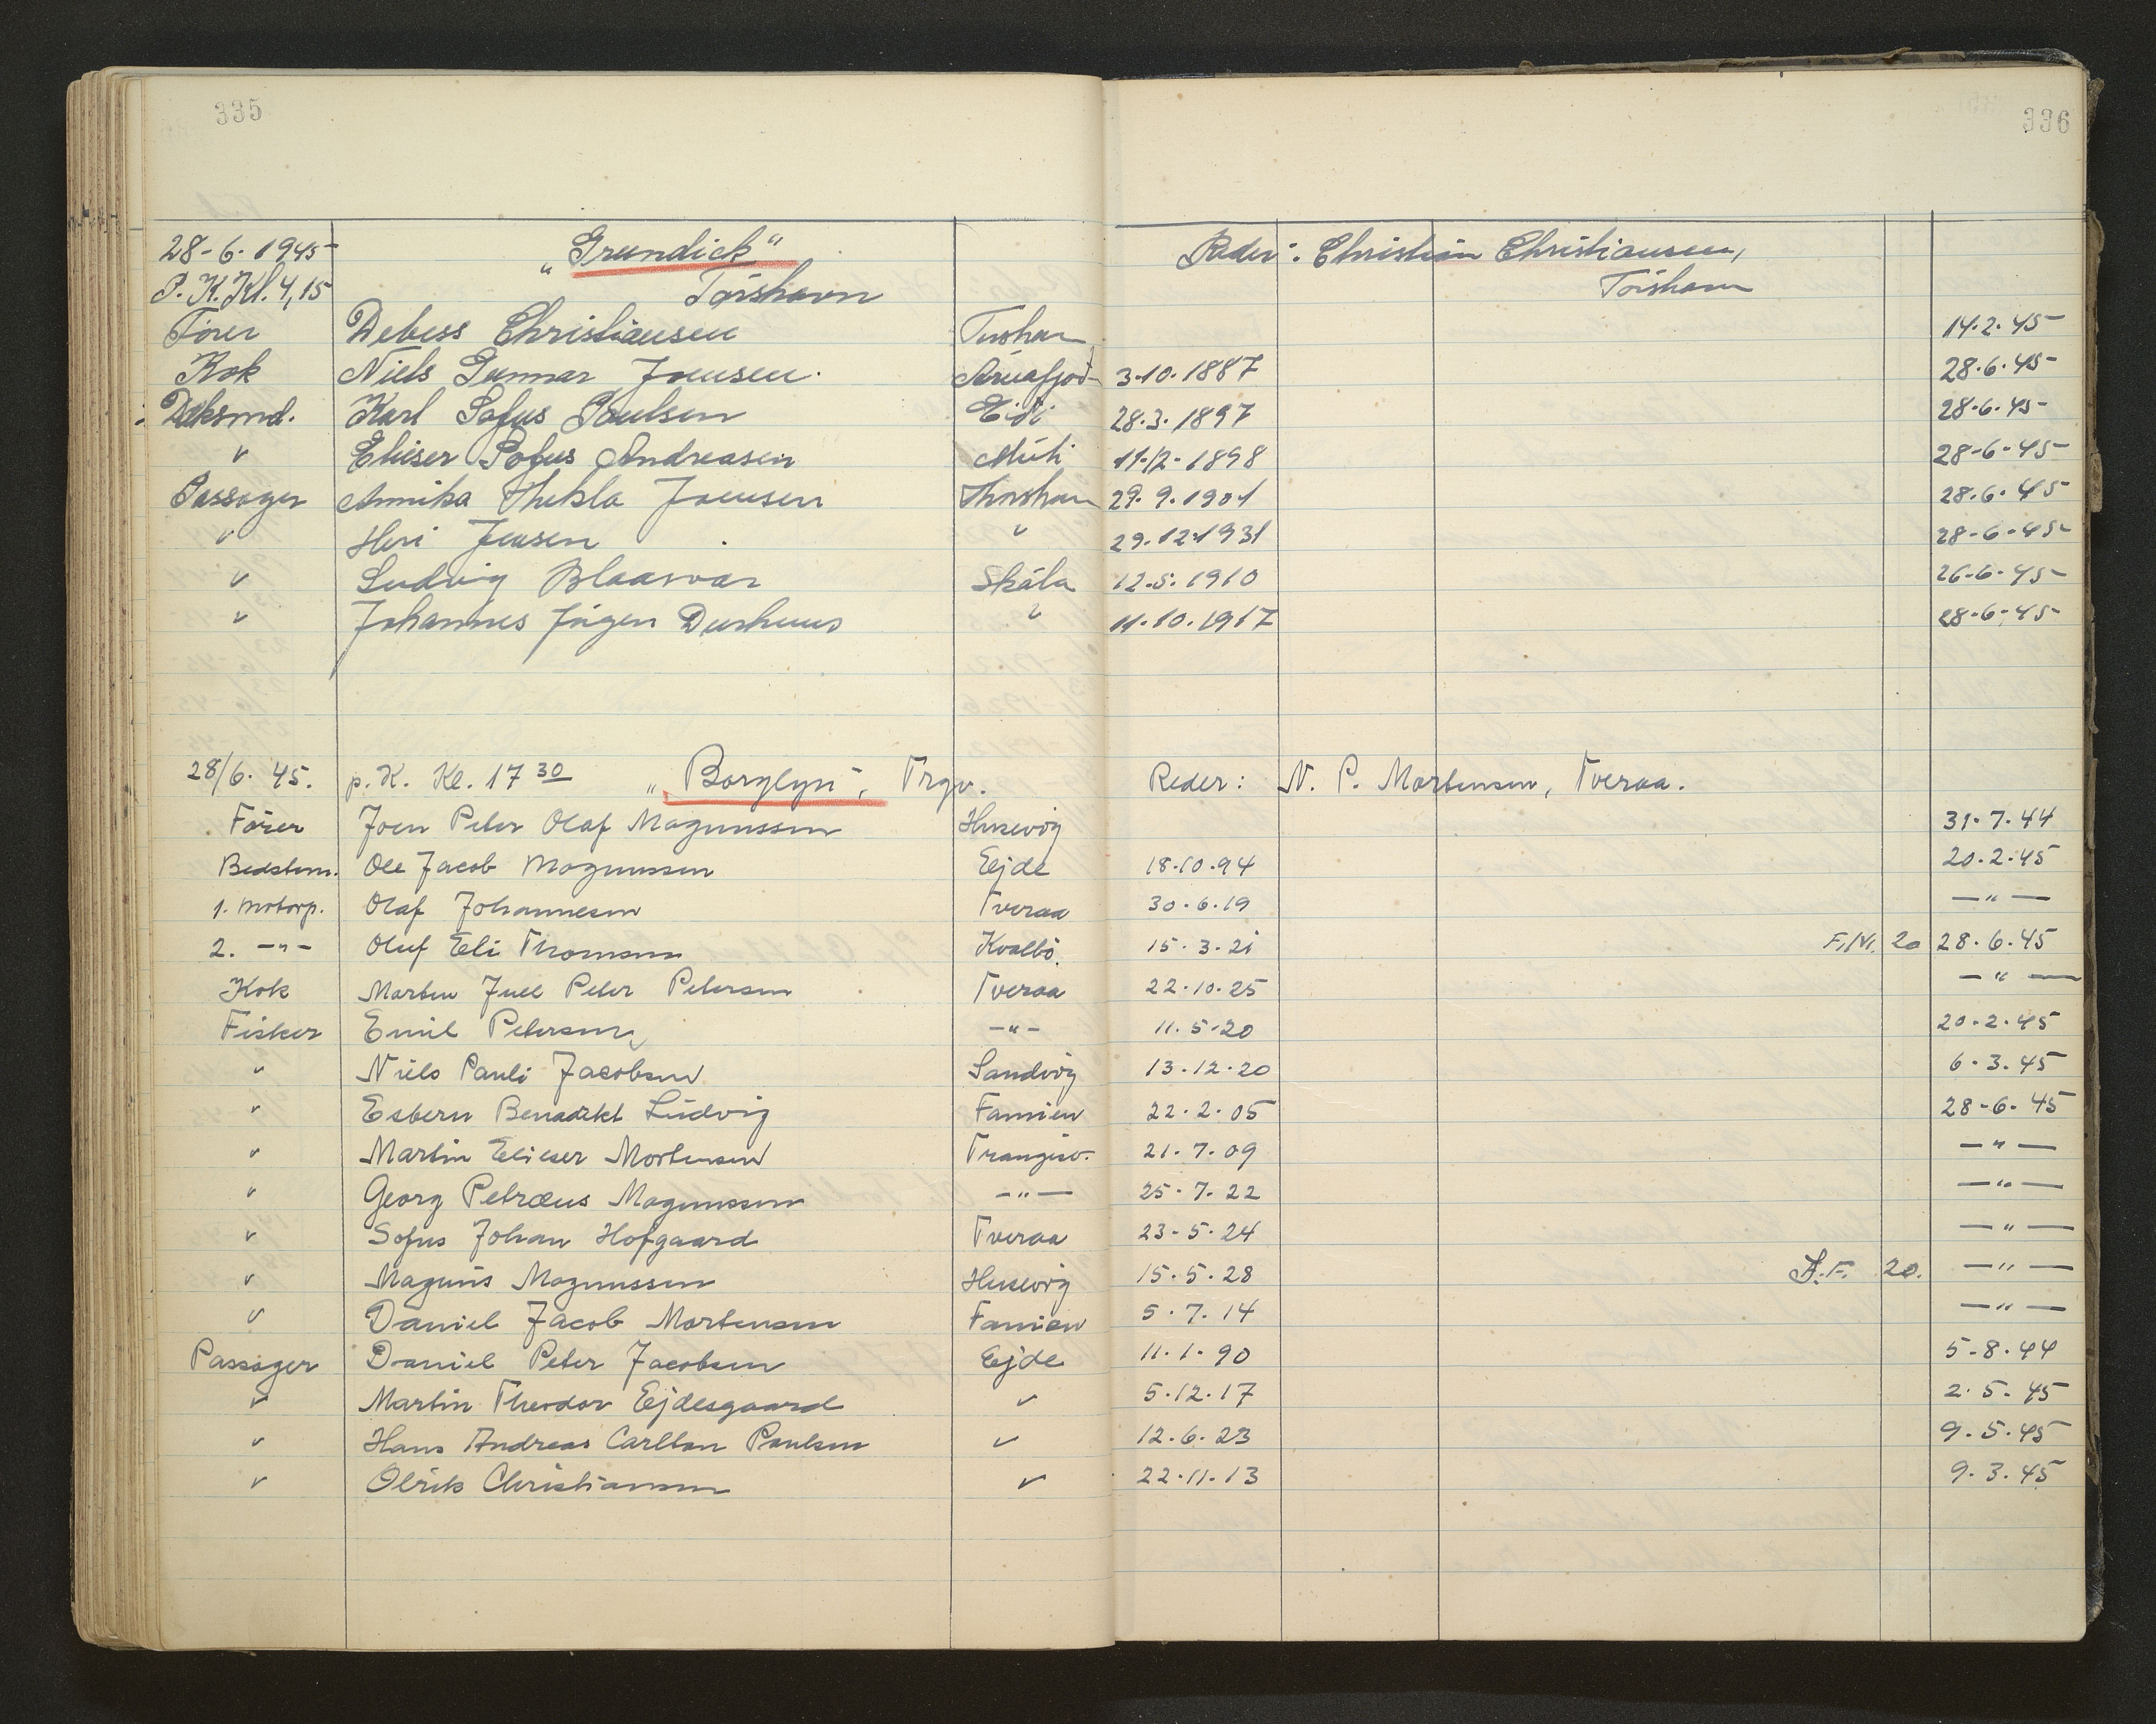 335
336
28-6-1945 „Grundick“ Reder: Christian Christiansen,
P.K. Kl. 4,15 Tórshavn Tórshavn
Fører Debess Christiansen Torshavn 14.2.45
Kok Niels Gunnar Joensen Árnafjord 3.10.1887 28.6.45
Deksmd. Karl Sofus Poulsen Eidi 28.3.1897 28.6.45
" Elieser Pofus Andreasen Múli 11-12-1898 28-6-45
Passager Annika Thekla Joensen Thorshavn 29.9.1901 28.6.45
" Heri Jensen " 29.12.1931 28-6-45
" Ludvig Blaasvar Skála 12.5.1910 26-6-45
" Johannes Jógen Durhuus " 11.10.1917 28-6-45
28/6. 45. p.K. Kl. 17 30 „Borglyn“, Trgv. Reder: N. P. Mortensen, Tveraa.
Fører Joen Peter Olaf Magnussen Husevig 31.7.44
Bedstem. Ole Jacob Magnussen Ejde 18.10.94 20.2.45
1. Motorp. Olaf Johannesen Tveraa 30.6.19 — " —
2. -"- Oluf Eli Thomsen Kvalbø. 15.3.21 F./V. 20 28.6.45
Kok Morten Juel Peter Petersen Tveraa 22.10.25 — " —
Fisker Emil Petersen -"- 11.5.20 20.2.45
" Niels Pauli Jacobsen Sandvig 13.12.20 6.3.45
" Esbern Benadikt Ludvig Famien 22.2.05 28-6-45
" Martin Elieser Mortensen Trangisv. 21.7.09 — " —
" Georg Petræus Magnussen — " — 25.7.22 — " —
" Sofus Johan Hofgaard Tveraa 23-5-24 — " —
" Magnus Magnussen Husevig 15.5.28 F.F. 20. — " —
" Daniel Jacob Mortensen Famien 5.7.14 — " —
Passager Daniel Peter Jacobsen Ejde 11.1.90 5-8-44
" Martin Theodor Ejdesgaard " 5.12.17 2.5.45
" Hans Andreas Carlton Poulsen " 12.6.23 9.5.45
" Olrik Christiansen " 22.11.13 9.3.45